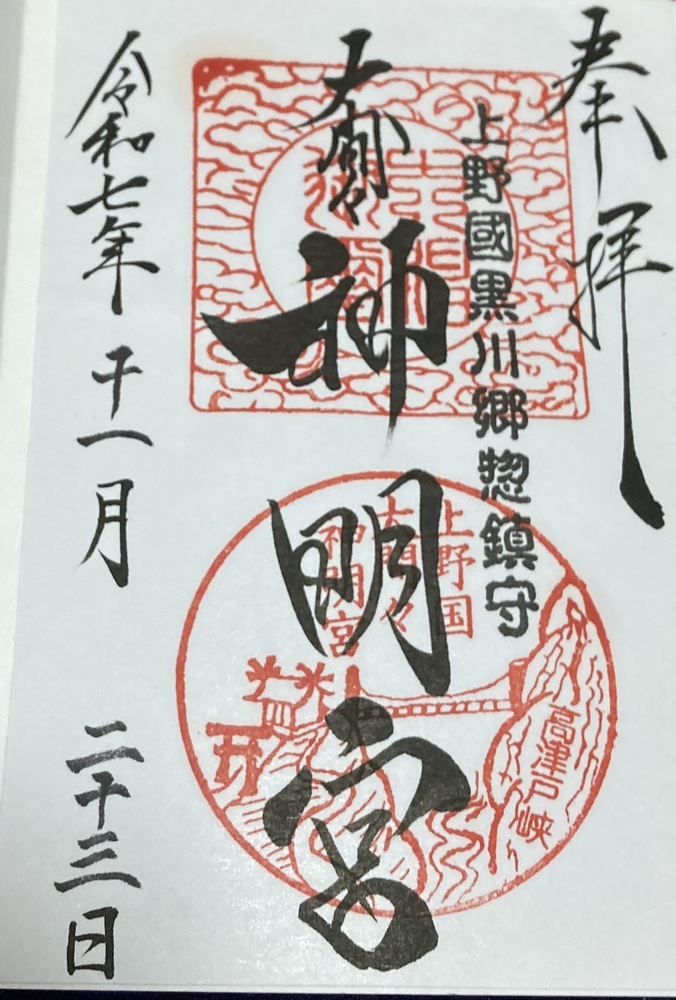 奉拝
上野國黒川郷惣鎮守
大間々
神明宮
上野国
大間々
神明宮
高津戸峡
令和七年十一月二十三日